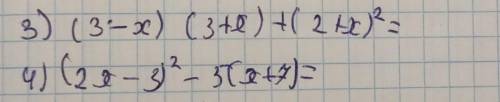 3) (3-x) (3+x) + (2+x)²=
4) (2x-3)² - 3(x+7)=